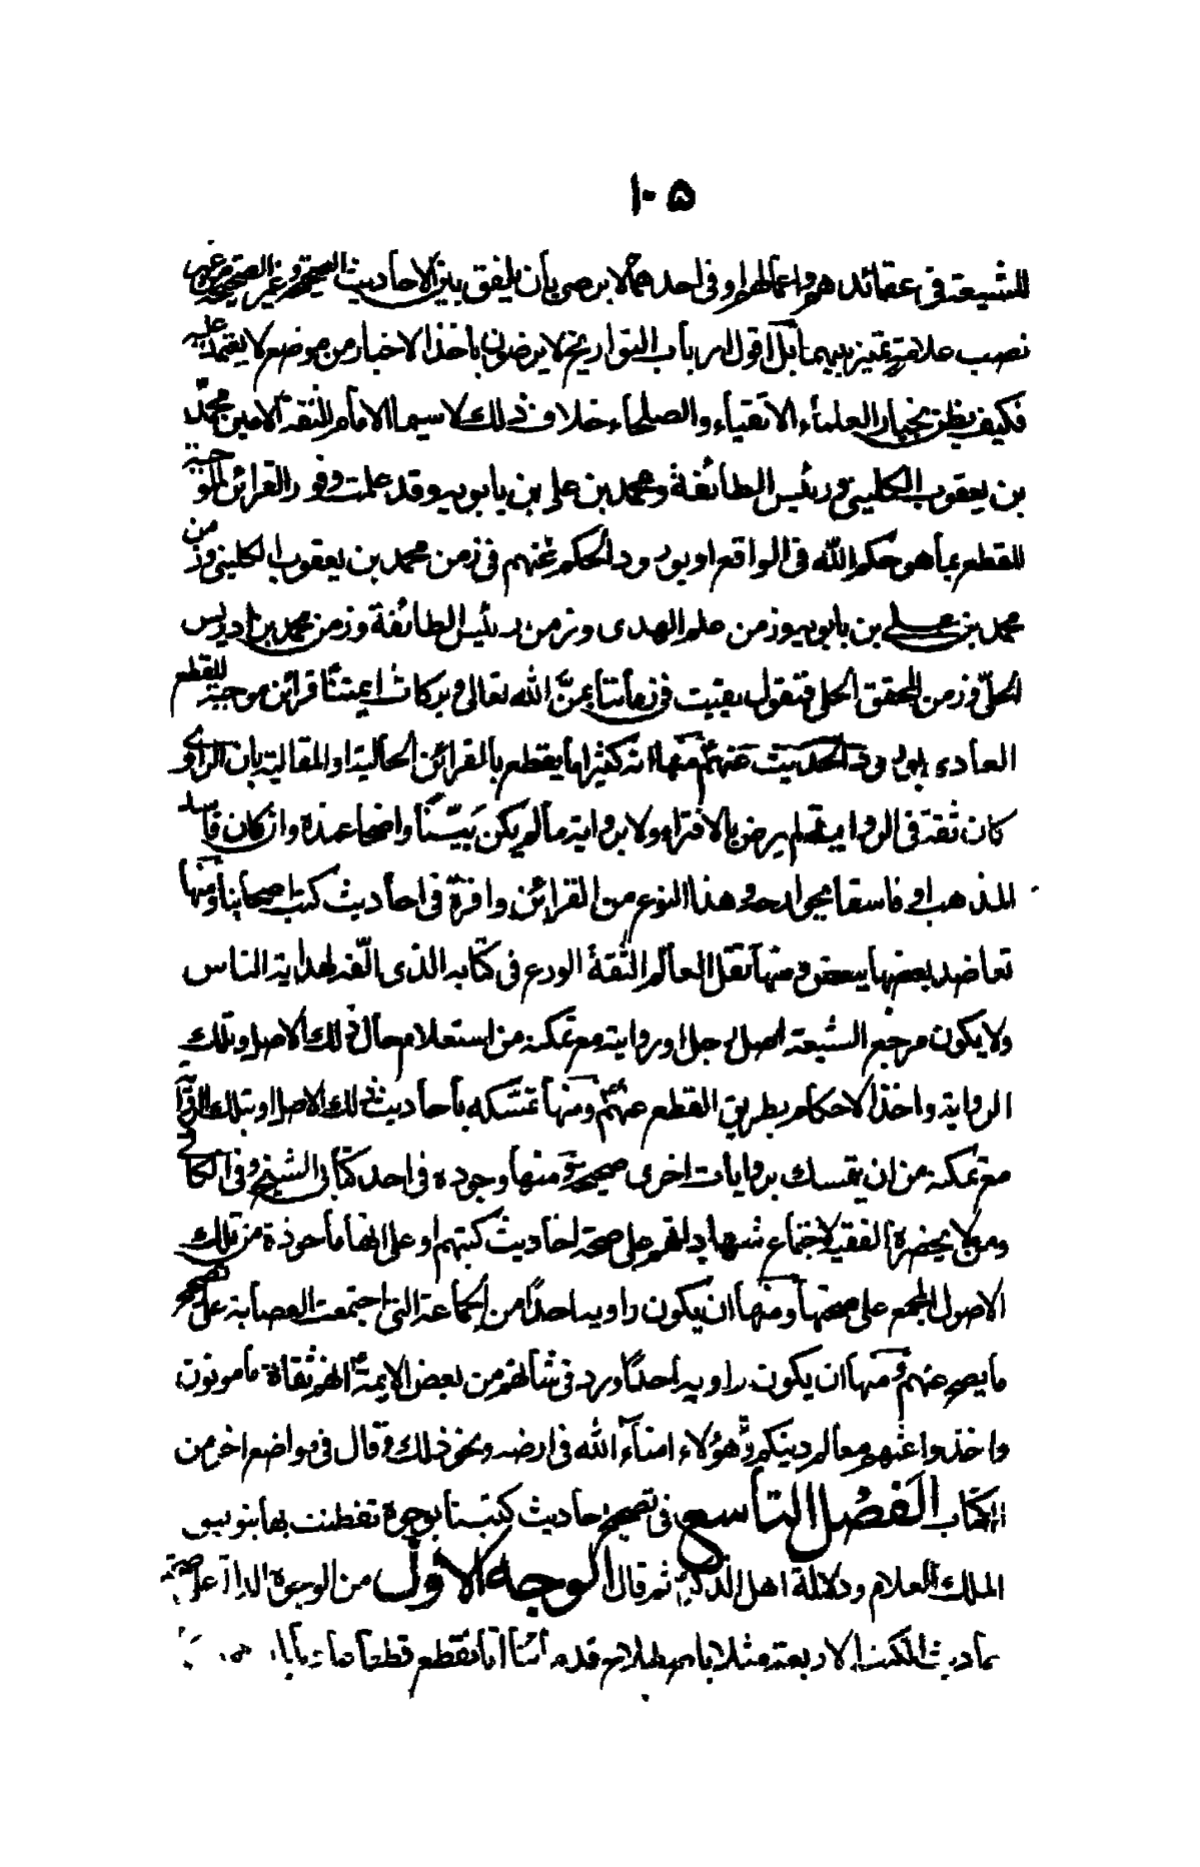 ١٠٥
للشيعة في عقائدهم واعمالهم او في احدهما لا يرضى بأن يلفق بين الاحاديث الصحيحة وغير الصحيحة من غير
نصب علامة تميز بينهما بل اقول ارباب التواريخ لا يرضون بأخذ الاخبار من موضع لا يعتمد عليه
فكيف يظن بخيار العلماء الاتقياء والصلحاء خلاف ذلك لا سيما الامام الثقة الامين محمّد
بن يعقوب الكليني ورئيس الطائفة ومحمد بن علي بن بابويه وقد علمت وفور القرائن الموجبة
للقطع بما هو حكم الله في الواقع او بورود الحكم عنهم في زمن محمد بن يعقوب الكليني وزمن
محمد بن علي بن بابويه وزمن علم الهدى وزمن رئيس الطائفة وزمن محمد بن ادريس
الحلّي وزمن المحقق الحلي فنقول بقيت في زماننا بمنّ الله تعالى وبركات ائمتنا قرائن موجبة للقطع
العادي بورود الحديث عنهم منها انه كثيرا ما يقطع بالقرائن الحالية او المقالية بان الراوي
كان ثقة في الرواية لم يرض بالافتراء ولا برواية ما لم يكن بيّنا واضحا عنده وان كان فاسد
المذهب او فاسقا بجوارحه وهذا النوع من القرائن وافرة في احاديث كتب اصحابنا ومنها
تعاضد بعضها ببعض ومنها نقل العالم الثقة الورع في كتابه الذي الّفه لهداية الناس
ولا يكون مرجع الشيعة اصل رجل او روايته مع تمكنه من استعلام حال ذلك الاصل وتلك
الرواية واخذ الاحكام بطريق القطع عنهم ومنها تمسّكه بأحاديث ذلك الاصل او بتلك الرواية
مع تمكنه من ان يتمسك بروايات اخرى صحيحة ومنها وجوده في احد كتابي الشيخ وفي الكافي
ومن لا يحضره الفقيه لاجتماع شهاداتهم على صحة احاديث كتبهم او على انها مأخوذة من تلك
الاصول المجمع على صحتها ومنها ان يكون راويه احدًا من الجماعة التي اجتمعت العصابة على تصحيح
ما يصح عنهم ومنها ان يكون راويه احدًا ورد في شأنهم من بعض الايمة انهم ثقاة مأمونون
واخذوا عنهم معالم دينكم وهؤلاء امنآء الله في ارضه ونحو ذلك وقال في مواضع اخر من
الكتاب الفصل التاسع في تصحيح احاديث كتبنا بوجوه تفطنت بها بتوفيق
الملك العلام ودلالة اهل الذكر ثم قال الوجه الاوّل من الوجوه الدالة على صحة
احاديث الكتب الاربعة مثلا باصطلاح قدمائنا انا نقطع قطعا عاديا بان